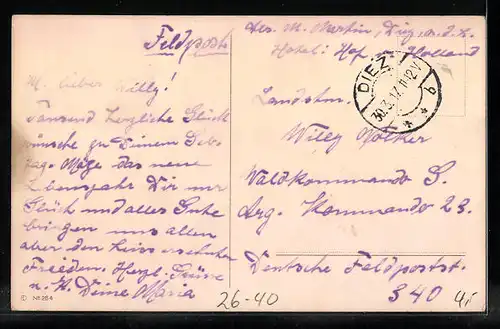 Feldpost.
Abs. M. Martin, Diez a. d. L.
Hotel: Hof v. Holland
DIEZ
30.3.17.11-12V
b
M. lieber Willy!
Tausend herzliche Glück
wünsche zu Deinem Geb.
tag. Möge das neue
Lebensjahr Dir nur
Glück und alles Gute
bringen uns allen
aber den heiss ersehnten
Frieden. Herzl. Grüsse
u. K. Deine Maria
Landstm.
Willy Völker
Waldkommando S.
Arg. Kommando 23.
Deutsche Feldpostst.
340
26-40
No 264